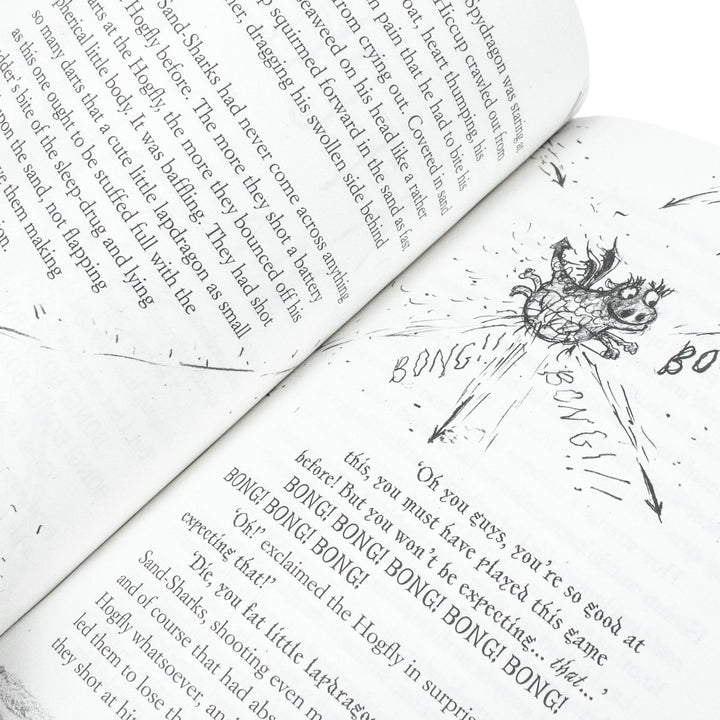 Spydragon was staring a
Hiccup crawled out from
oat, heart thumping, his
n pain that he had to bite his
from crying out. Covered in sand
seaweed on his head like a rather
p squirmed forward in the sand as fast
her, dragging his swollen side behind
Sand-Sharks had never come across anything
Hogfly before. The more they shot a battery
arts at the Hogfly, the more they bounced off his
pherical little body. It was baffling. They had shot
so many darts that a cute little lapdragon as small
as this one ought to be stuffed full with the
dder's bite of the sleep-drug and lying
upon the sand, not flapping
ve them making
ion.
BONG!!
BONG!!!
BO
'Oh you guys, you're so good at
this, you must have played this game
before! But you won't be expecting... that...'
BONG! BONG! BONG! BONG! BONG!
BONG! BONG! BONG!
'Oh!' exclaimed the Hogfly in surpris
expecting that!'
'Die, you fat little lapdrago
Sand-Sharks, shooting even m
and of course that had abs
Hogfly whatsoever, an
led them to lose th
they shot at hi